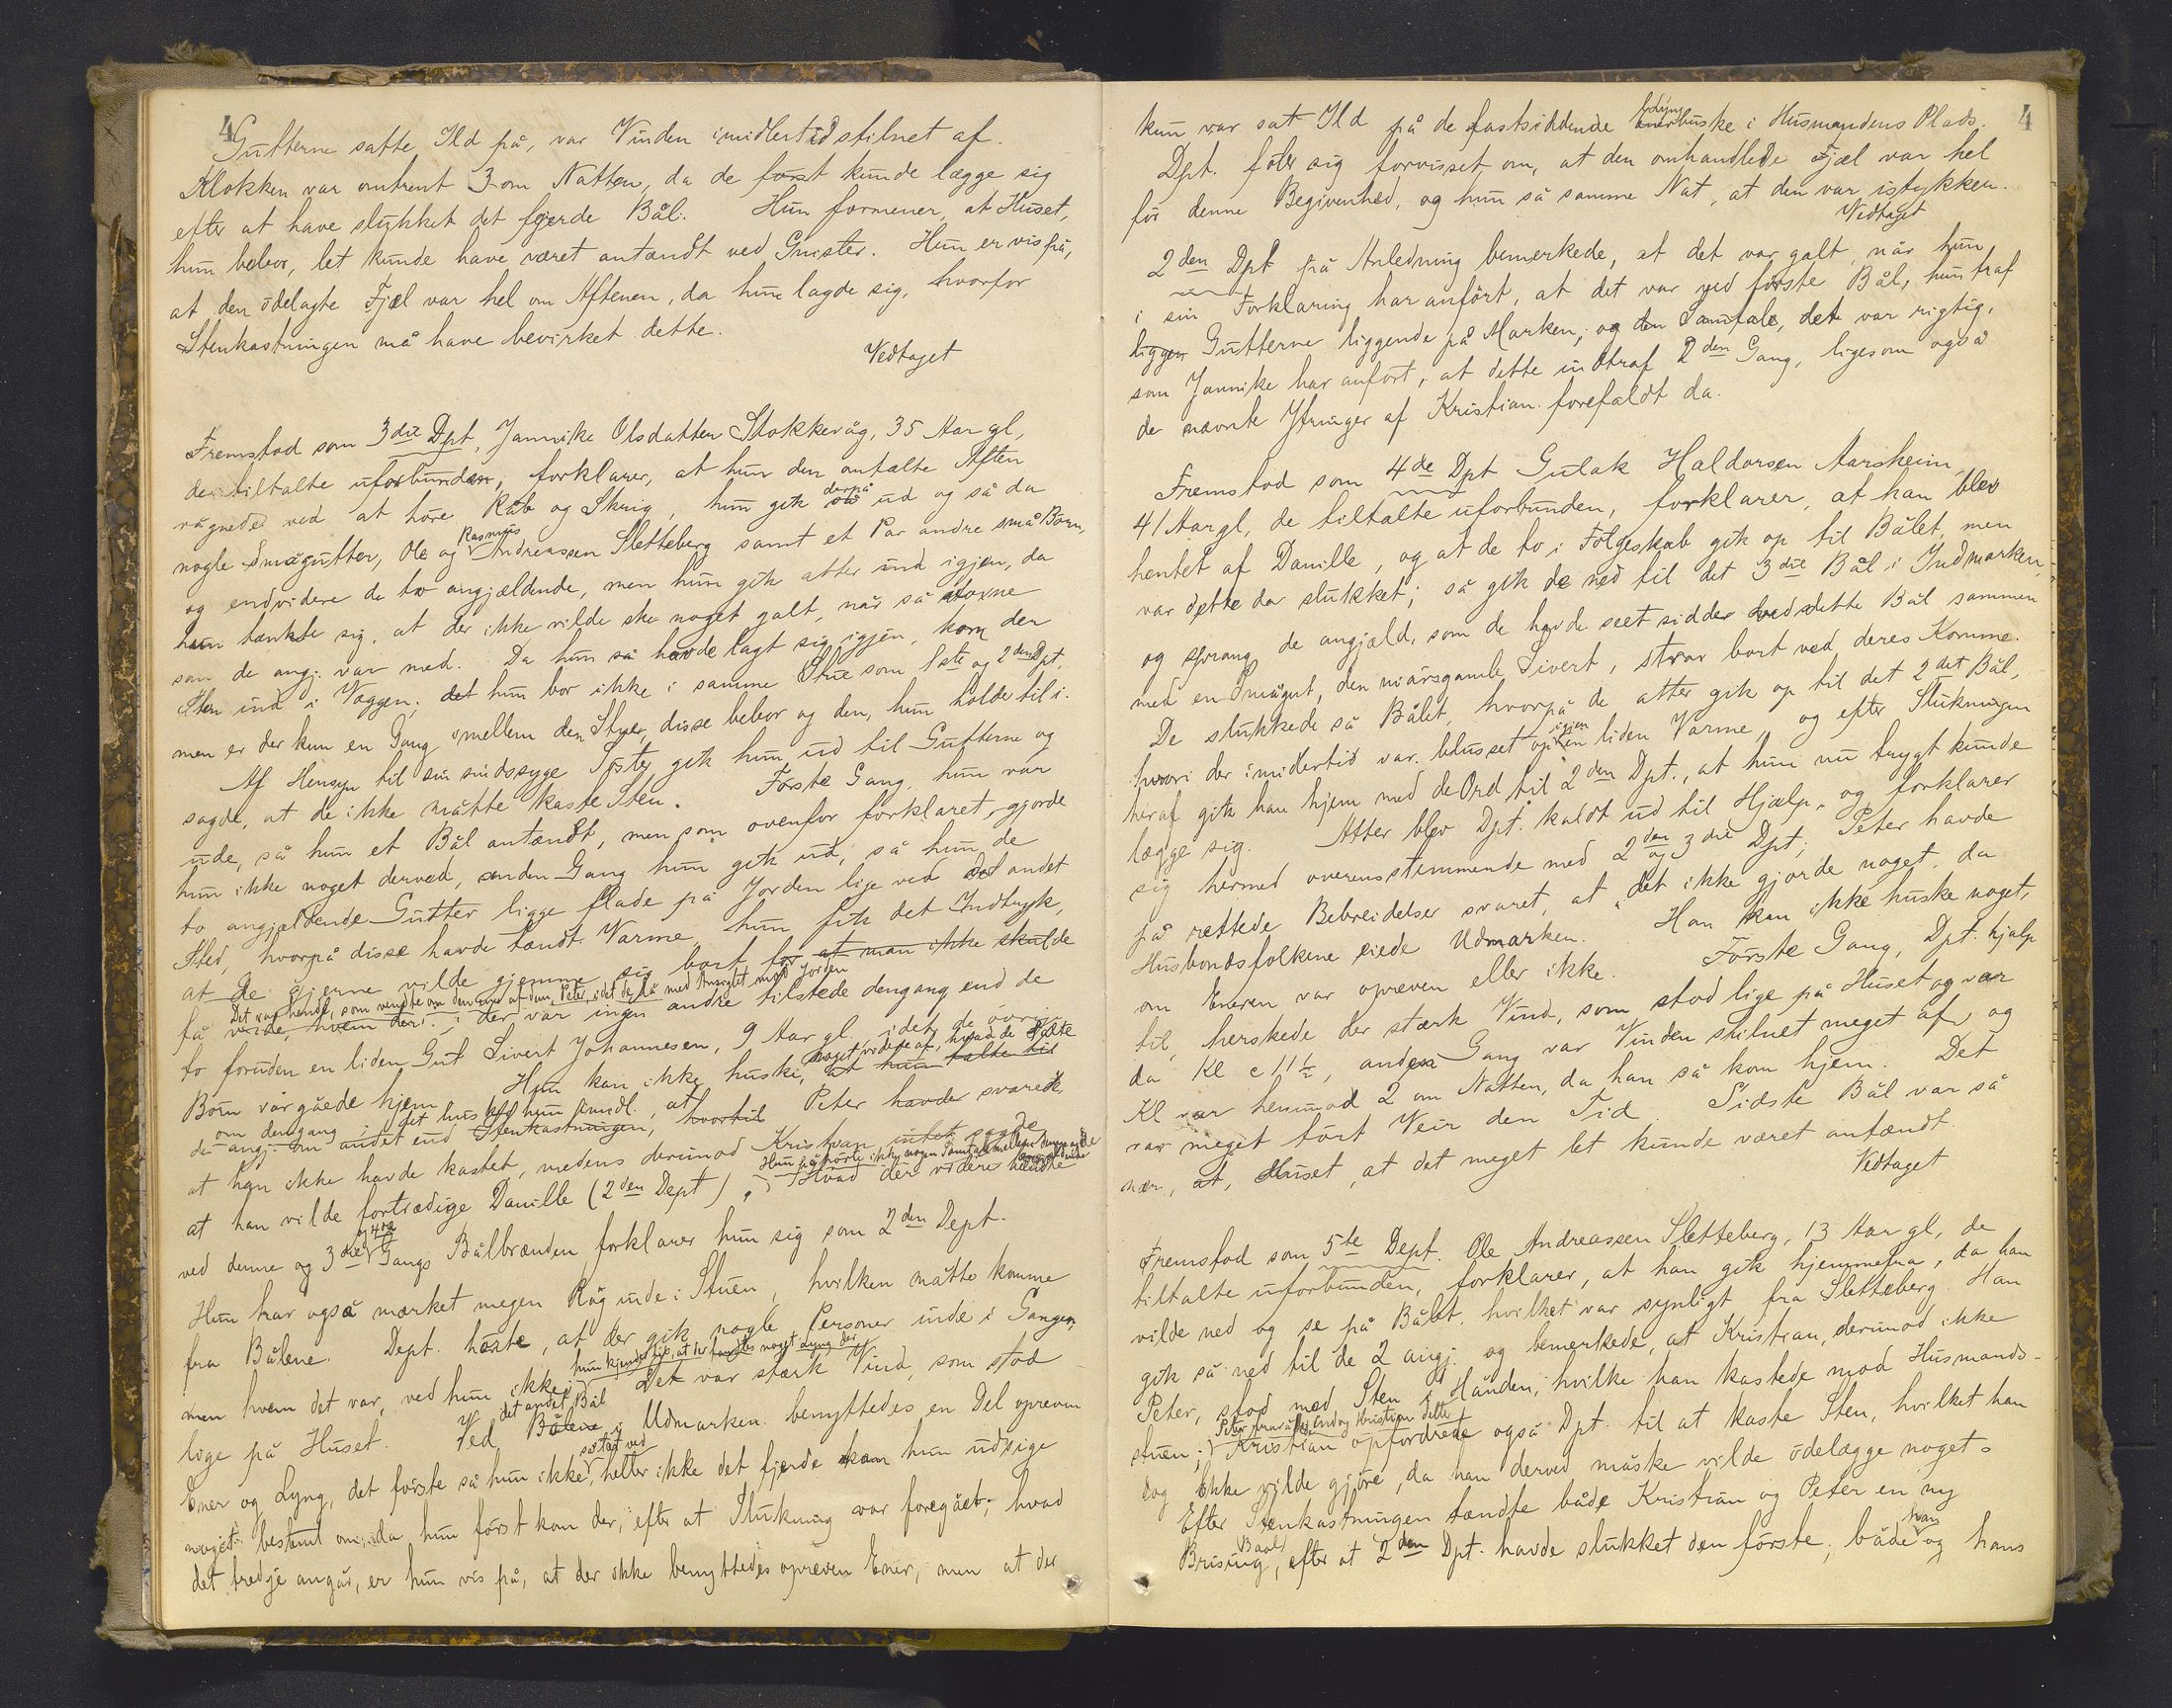 4
Gutterne satte Ild på, var Vinden imidlertid stilnet af.
Klokken var omtrent 3 om Natten, da de først kunde lægge sig
efter at have slukket det fjerde Bål. Hun formener, at Huset,
hun bebor, let kunde have været antændt ved Gnister. Hun er vis på,
at den ødelagte Fjæl var hel om Aftenen, da hun lagde sig, hvorfor
Stenkastningen må have bevirket dette.
Vedtaget
Fremstod som 3die Dpt, Jannike Olsdatter Stokkevåg, 35 Aar gl,
de tiltalte uforbunden, forklarer, at hun den omtalte Aften
vågnede ved at høre Råb og Skrig, hun gik så derpå ud og så da
nogle Smågutter, Ole og Rasmus Andreassen Sletteberg samt et Par andre små Børn,
og endvidere de to angjældende, men hun gik atter ind igjen, da
hun tænkte sig, at der ikke vilde ske noget galt, når så voxne
som de angj. var med. Da hun så havde lagt sig igjen, kom der
Sten ind i Væggen; det hun bor ikke i samme Stue som 1ste og 2den Dpt,
men er der kun en Gang imellem den Stue, disse bebor og den, hun holder til i.
Af Hensyn til sin sindssyge Søster gik hun ud til Gutterne og
sagde, at de ikke måtte kaste Sten. Første Gang, hun var
ude, så hun et Bål antændt, men som ovenfor forklaret, gjorde
hun ikke noget derved, anden Gang hun gik ud, så hun de
to angjældende Gutter ligge flade på Jorden lige ved det andet
Sted, hvorpå disse havde tændt Varme, hun fik det Indtryk,
at de gjerne vilde gjemme sig bort for at man ikke skulde
Det var hende, som vendte om den ene af dem, Peter, idet de lå med Ansigtet mod Jorden
få vide, hvem der; der var ingen andre tilstede dengang end de
to foruden en liden Gut Sivert Johannesen, 9 Aar gl. idet de øvrige
Børn var gåede hjem. Hun kan ikke huske, noget videre af, hvad de talte at hun talte til
de angj. om dengang andet end Stenkastningen, hvortil at Peter havde svaret,
at han ikke havde kastet, medens derimod Kristian intet sagde
at han vilde fortrædige Danille (2den Dept). Hvad der videre hændte
ved denne og 3die og 4de Gangs Bålbrænden forklarer hun sig som 2den Dept.
Hun har også mærket megen Røg inde i Stuen, hvilken måtte komme
fra Bålene. Dept. hørte, at der gik nogle Personer inde i Gangen,
men hvem det var, ved hun ikke; Det var stærk Vind, som stod
lige på Huset. Ved det andet Bål Bålene i Udmarken benyttedes en Del opreven
Ener og Lyng, det første så hun ikke så tæt ved, heller ikke det fjerde kan hun udsige
noget bestemt om, da hun først kom der, efter at Slukning var foregået; hvad
det tredje angår, er hun vis på, at der ikke benyttedes opreven Ener, men at der
4
kun var sat Ild på de fastsiddende enerbuske i Husmandens Plads.
Dpt. føler sig forvisset om, at den omhandlede Fjæl var hel
før denne Begivenhed, og hun så samme Nat, at den var istykken.
Vedtaget
2den Dpt på Anledning bemerkede, at det var galt, når hun
i sin Forklaring har anført, at det var ved første Bål, hun traf
liggen Gutterne liggende på Marken, og den Samtale, det var rigtig,
som Jannike har anført, at dette indtraf 2den Gang, ligesom også
de nævnte Ytringer af Kristian forefaldt da.
Fremstod som 4de Dpt Gulak Haldorsen Aarsheim
41 Aar gl, de tiltalte uforbunden, forklarer, at han blev
hentet af Danille, og at de to i Følgeskab gik op til Bålet, men
var dette da slukket; så gik de ned til det 3die Bål i Indmarken,
og sprang de angjæld, som de havde seet sidde ved dette Bål sammen
med en Smågut, den niårsgamle Sivert, strax bort ved deres Komme.
De slukkede så Bålet, hvorpå de atter gik op til det 2det Bål,
hvori der imidlertid var blusset op igjen en liden Varme, og efter Slukningen
heraf gik han hjem med de Ord til 2den Dpt., at hun nu trygt kunde
lægge sig. Atter blev Dpt. kaldt ud til Hjælp, og forklarer
sig hermed overensstemmende med 2den og 3die Dpt; Peter havde
på rettede Bebreidelser svaret, at det ikke gjorde noget, da
Husbondsfolkene eiede Udmarken. Han kan ikke huske noget,
om Eneren var opreven eller ikke. Første Gang, Dpt. hjalp
til, herskede der stærk Vind, som stod lige på Huset og var
da Kl c 11½, anden Gang var Vinden stilnet meget af, og
Kl var henimod 2 om Natten, da han så kom hjem. Det
var meget tørt Veir den Tid. Sidste Bål var så
nær, at, Huset, at det meget let kunde været antændt.
Vedtaget
Fremstod som 5te Dept. Ole Andreassen Sletteberg, 13 Aar gl, de
tiltalte uforbunden, forklarer, at han gik hjemmefra, da han
vilde ned og se på Bålet, hvilket var synligt fra Sletteberg. Han
gik så ned til de 2 angj. og bemerkede, at Kristian, derimod ikke
Peter, stod med Sten i Hånden, hvilke han kastede mod Husmands-
stuen; Kristian opfordrede også Dpt. til at kaste Sten, hvilket han
dog ikke vilde gjøre, da han derved måske vilde ødelægge noget.
Efter Stenkastningen tændte både Kristian og Peter en ny
Brising, Baal efter at 2den Dpt. havde slukket den første; både han og hans